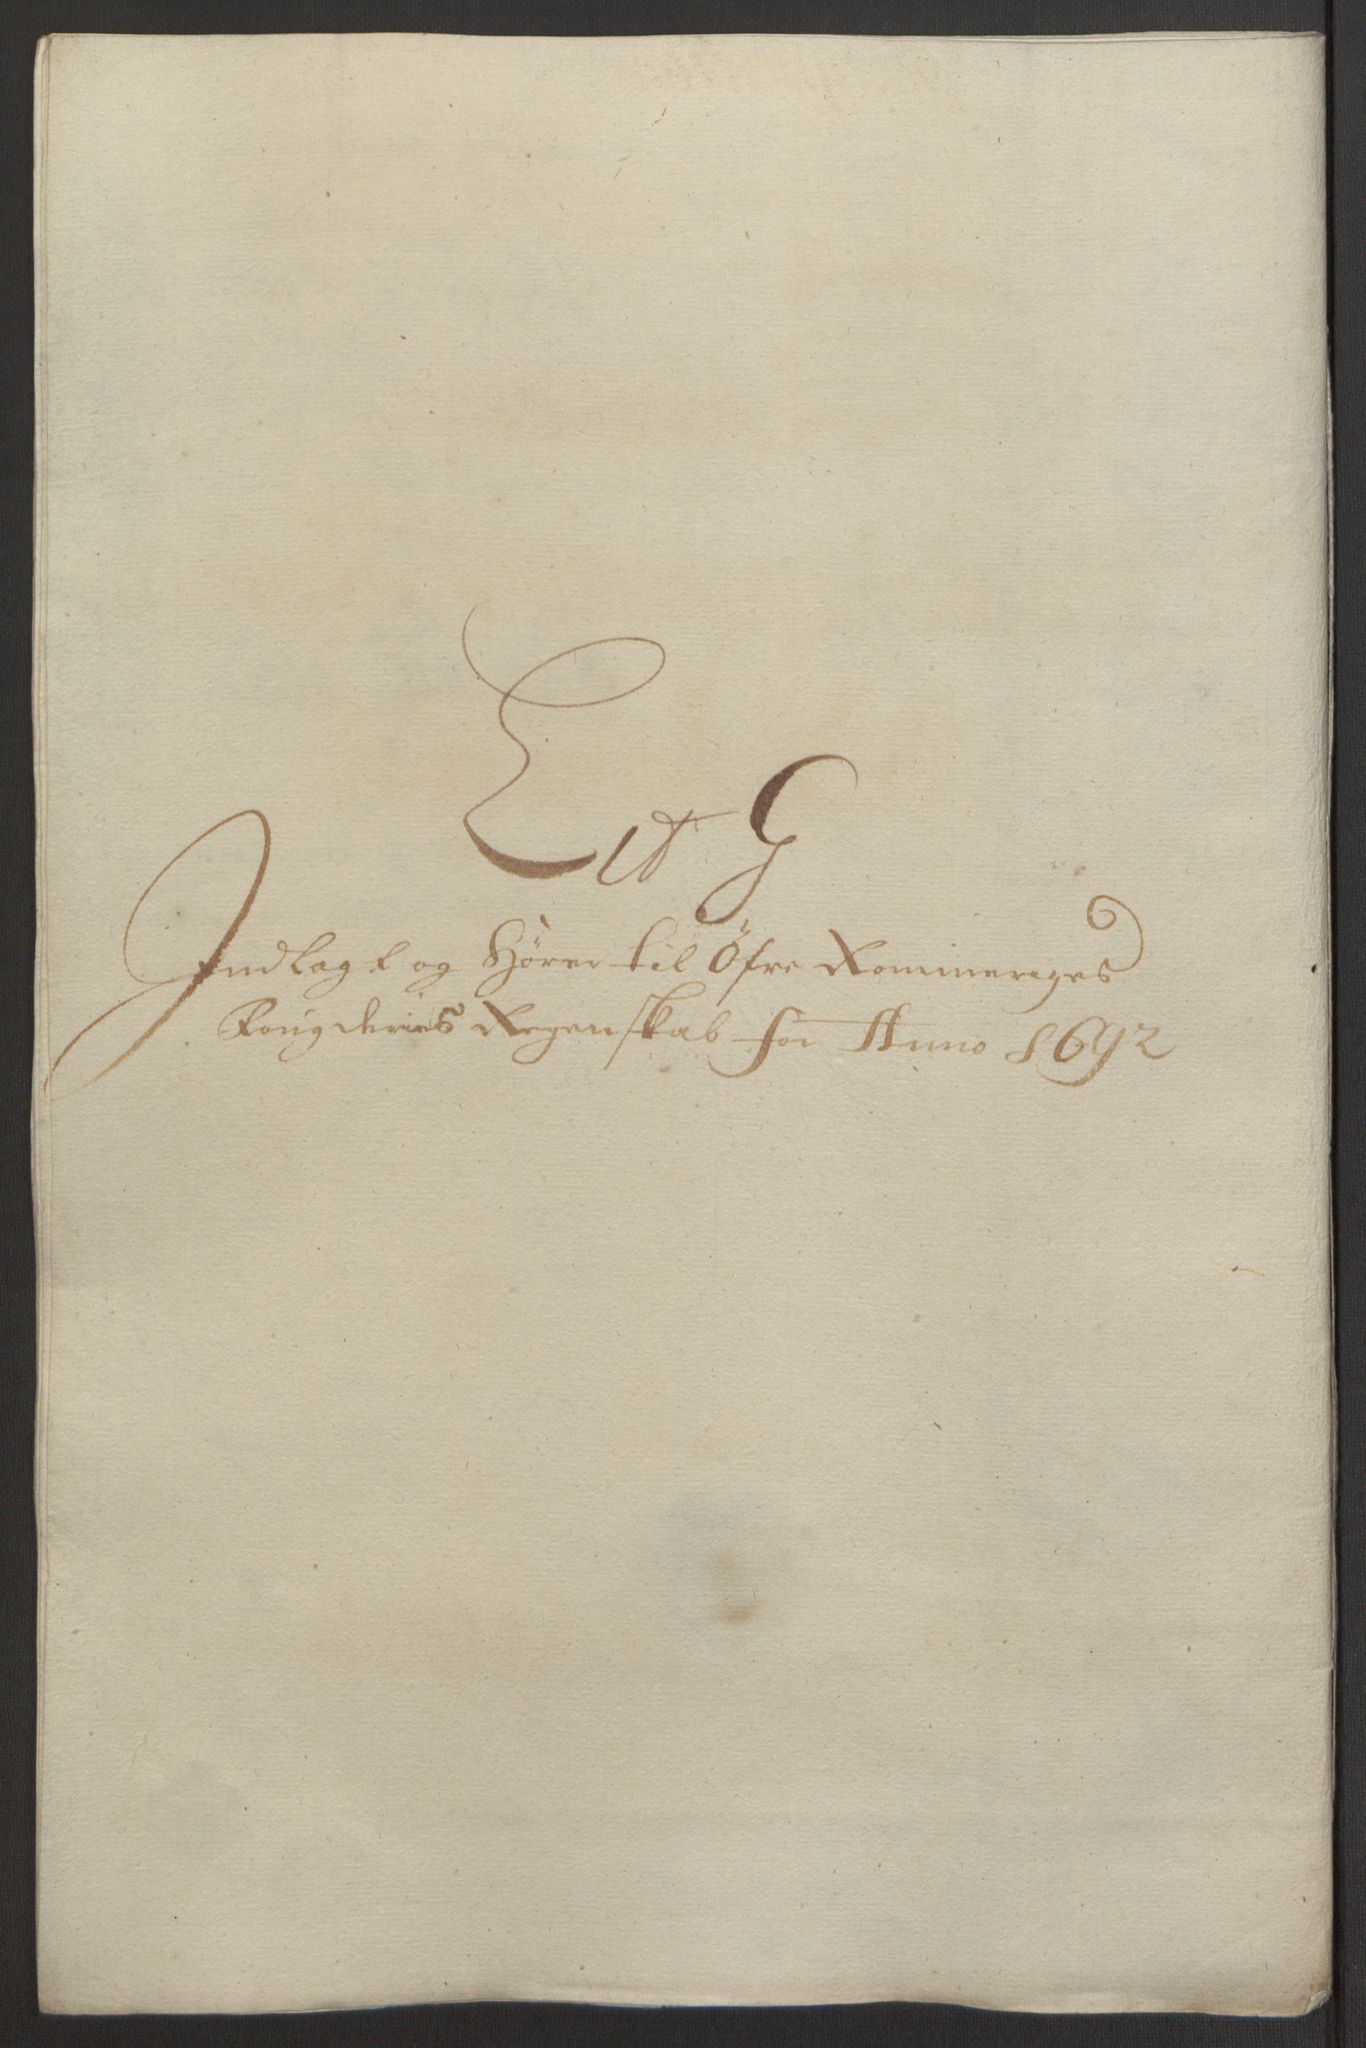 Lit G
Indlagt og Hører til Öfre Rommeriges
Fougderies Regenskab for Anno 1692